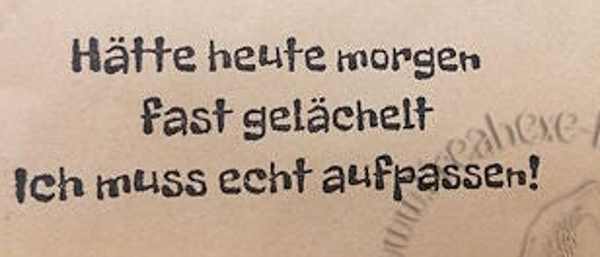 Hätte heute morgen
fast gelächelt
Ich muss echt aufpassen!